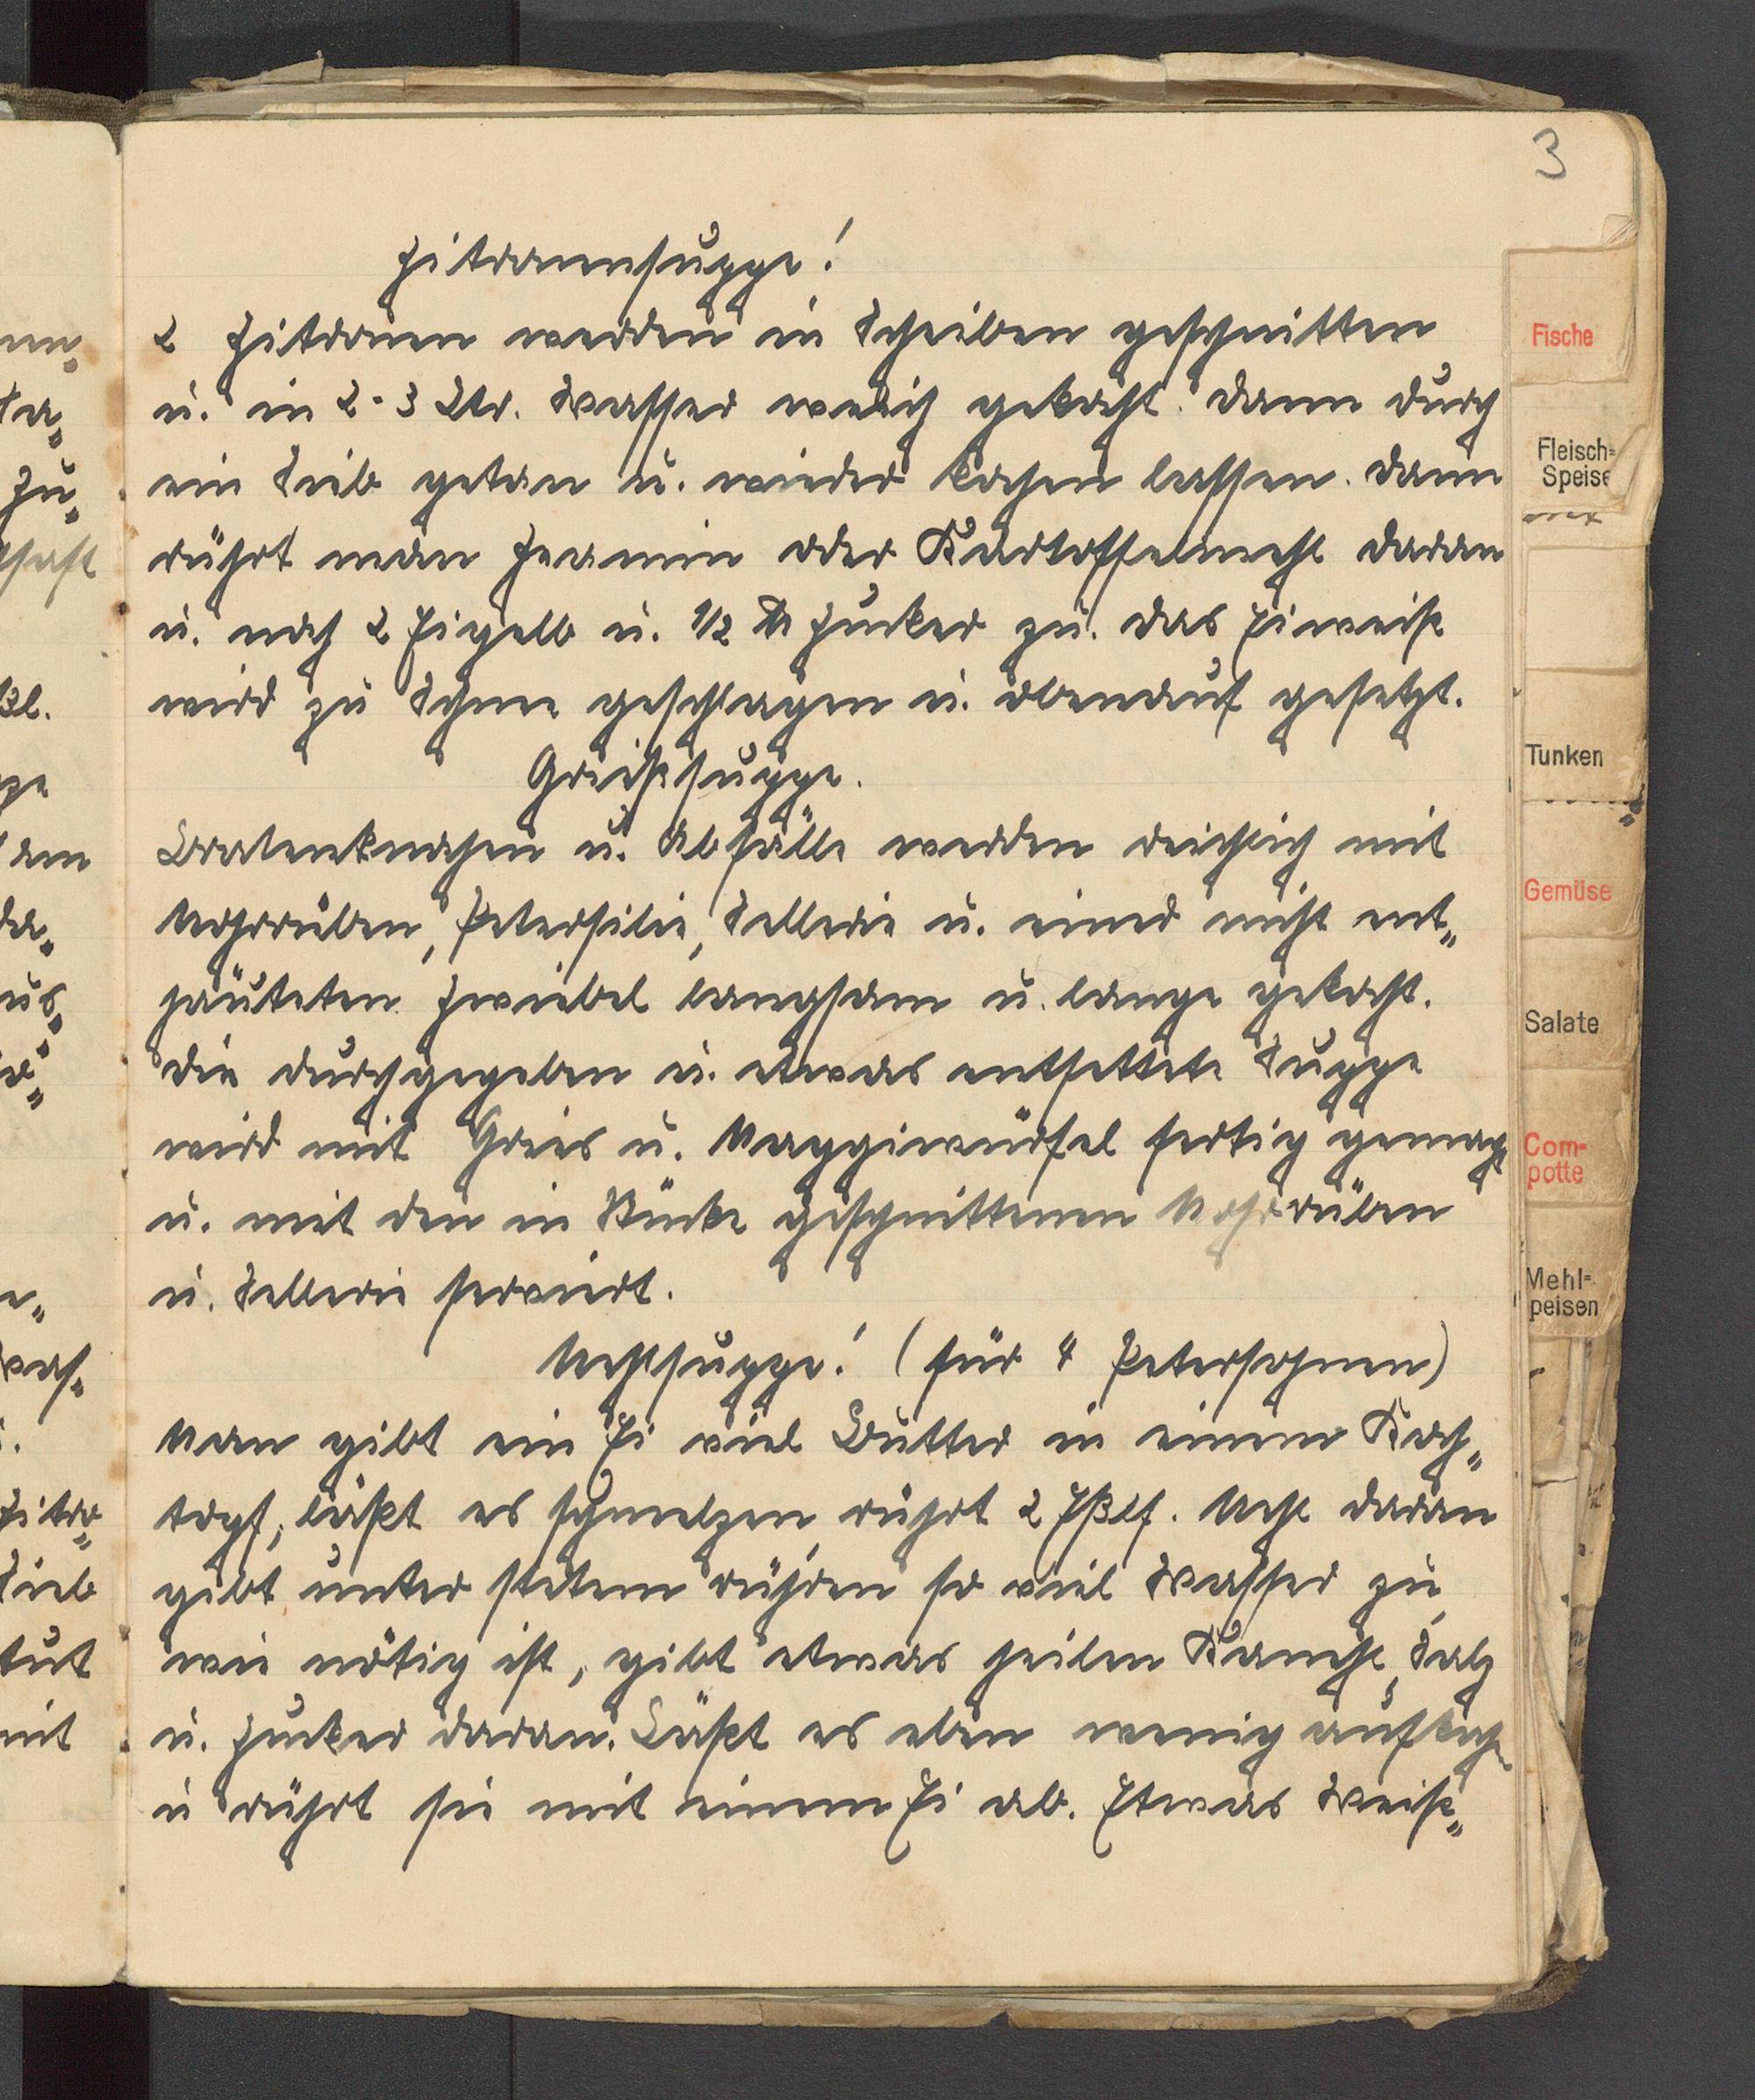 3
Zitronensuppe!
2 Zitronen werden in Scheiben geschnitten
u. in 2-3 Ltr. Wasser weich gekocht. Dann durch
ein Sieb getan u. wieder kochen lassen. Dann
rührt man oder Kartoffelmehl daran
u. noch 2 Eigelb u. 1/2 ℔ Zucker zu. Das Eiweiß
wird zu Schnee geschlagen u. obenauf gesetzt.
Grießsuppe.
Bratenknochen u. Abfälle werden reichlich mit
Mohrrüben, Petersilie, Sellerie u. einer nicht ent„
häuteten Zwiebel langsam u. lange gekocht.
Die durchgegeben u. etwas entfettete Suppe
wird mit Gries u. Maggiwürfel fertig gemach
u. mit den in Stücke geschnittenen Mohrrüben
u. Sellerie serviert.
Mehlsuppe! (für 4 Petersohnen)
Man gibt ein Ei viel Butter in einem Koch„
topf, läßt es schmelzen, rührt 2 Eßlf. Mehl daran
gibt unter stetem rühren so viel Wasser zu,
wie nötig ist, gibt etwas heilen Kaneehl, Salz
u. Zucker daran. Läßt es eben wenig aufkoch
u rührt sie mit einem Ei ab. Etwas Weiß„
Fische
Fleisch=
Speise
Tunken
Gemüse
Salate
Com-
potte
Mehl=
peisen